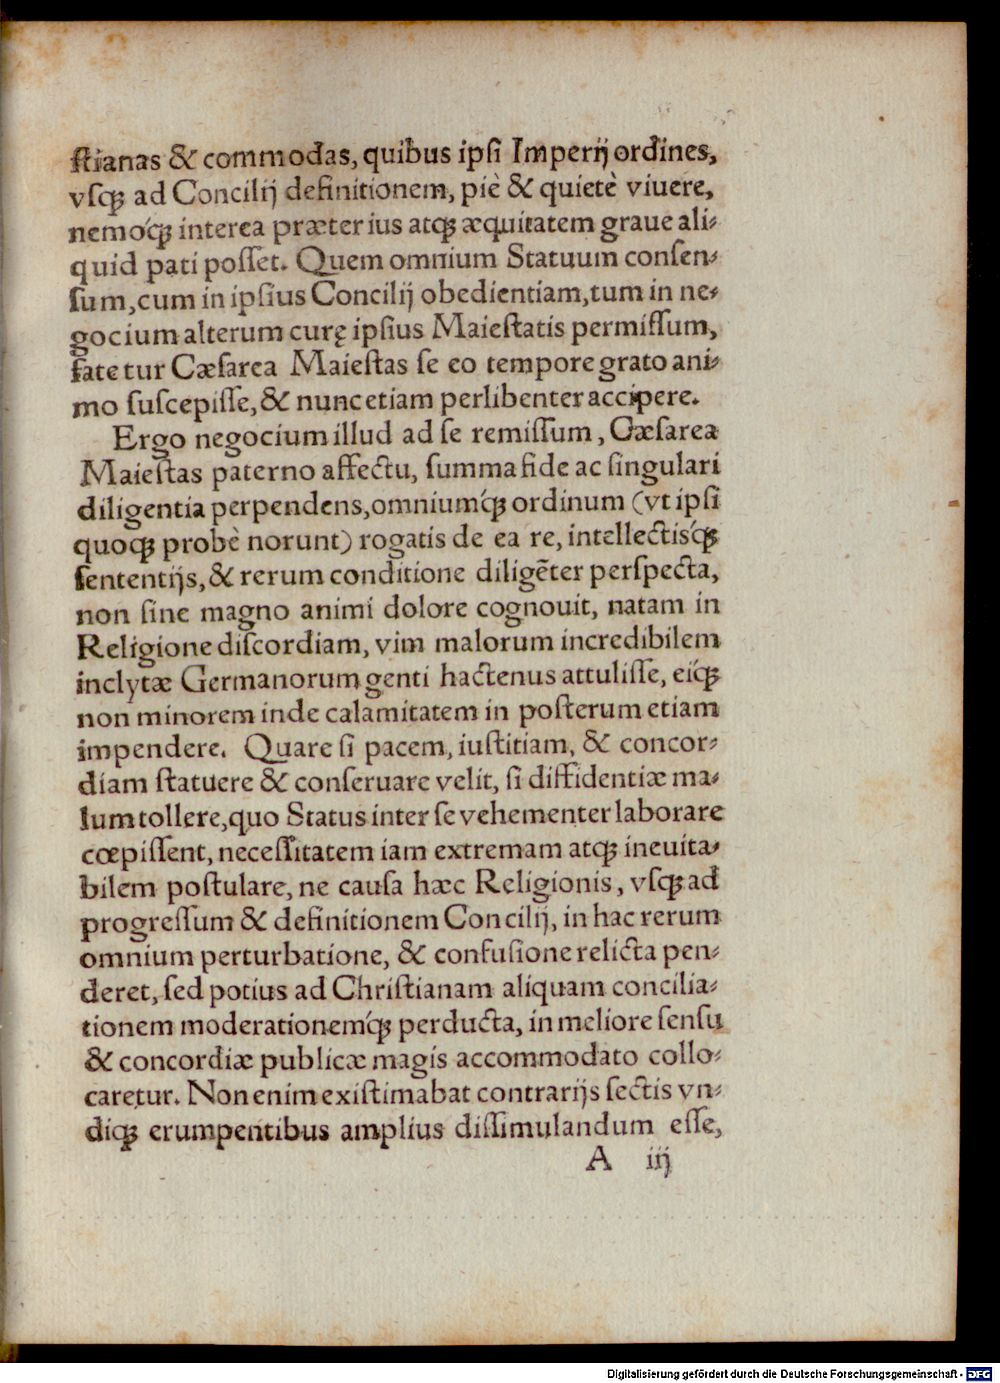 ſtianas & commodas, quibus ipſi Imperij ordines,
vſqꝫ ad Concilij definitionem, piè & quietè viuere,
nemoq́ꝫ interea præter ius atqꝫ æquitatem graue ali-
quid pati poſſet. Quem omnium Statuum conſen-
ſum, cum in ipſius Concilij obedientiam, tum in ne-
gocium alterum curę ipſius Maieſtatis permiſſum,
fatetur Cæſarea Maieſtas ſe eo tempore grato ani-
mo ſuſcepiſſe, & nunc etiam perlibenter accipere.
Ergo negocium illud ad ſe remiſſum, Cæſarea
Maieſtas paterno affectu, ſumma fide ac ſingulari
diligentia perpendens, omniumq́ꝫ ordinum (vt ipſi
quoqꝫ probè norunt) rogatis de ea re, intellectisq́ꝫ
ſententijs, & rerum conditione diligēter perſpecta,
non ſine magno animi dolore cognouit, natam in
Religione diſcordiam, vim malorum incredibilem
inclytæ Germanorum genti hactenus attuliſſe, eiq́ꝫ
non minorem inde calamitatem in poſterum etiam
impendere. Quare ſi pacem, iuſtitiam, & concor-
diam ſtatuere & conſeruare velit, ſi diffidentiæ ma-
lum tollere, quo Status inter ſe vehementer laborare
cœpiſſent, neceſſitatem iam extremam atqꝫ ineuita-
bilem poſtulare, ne cauſa hæc Religionis, vſqꝫ ad
progreſſum & definitionem Concilij, in hac rerum
omnium perturbatione, & confuſione relicta pen-
deret, ſed potius ad Chriſtianam aliquam concilia-
tionem moderationemq́ꝫ perducta, in meliore ſenſu
& concordiæ publicæ magis accommodato collo-
caretur. Non enim exiſtimabat contrarijs ſectis vn-
diqꝫ erumpentibus amplius diſſimulandum eſſe,
A iij
Digitalisierung gefördert durch die Deutsche Forschungsgemeinschaft - DFG